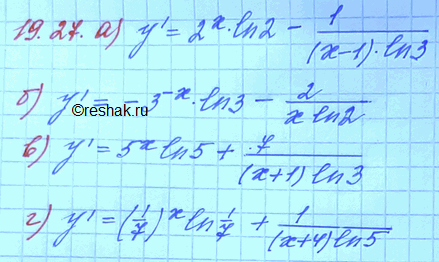 19.27. а) y' = 2^x · ln2 − 1/((x−1) · ln3)
б) y' = −3^(−x) · ln3 − 2/(x ln2)
©reshak.ru
в) y' = 5^x ln5 + 7/((x+1) ln3)
г) y' = (1/7)^x ln 1/7 + 1/((x+4) ln5)